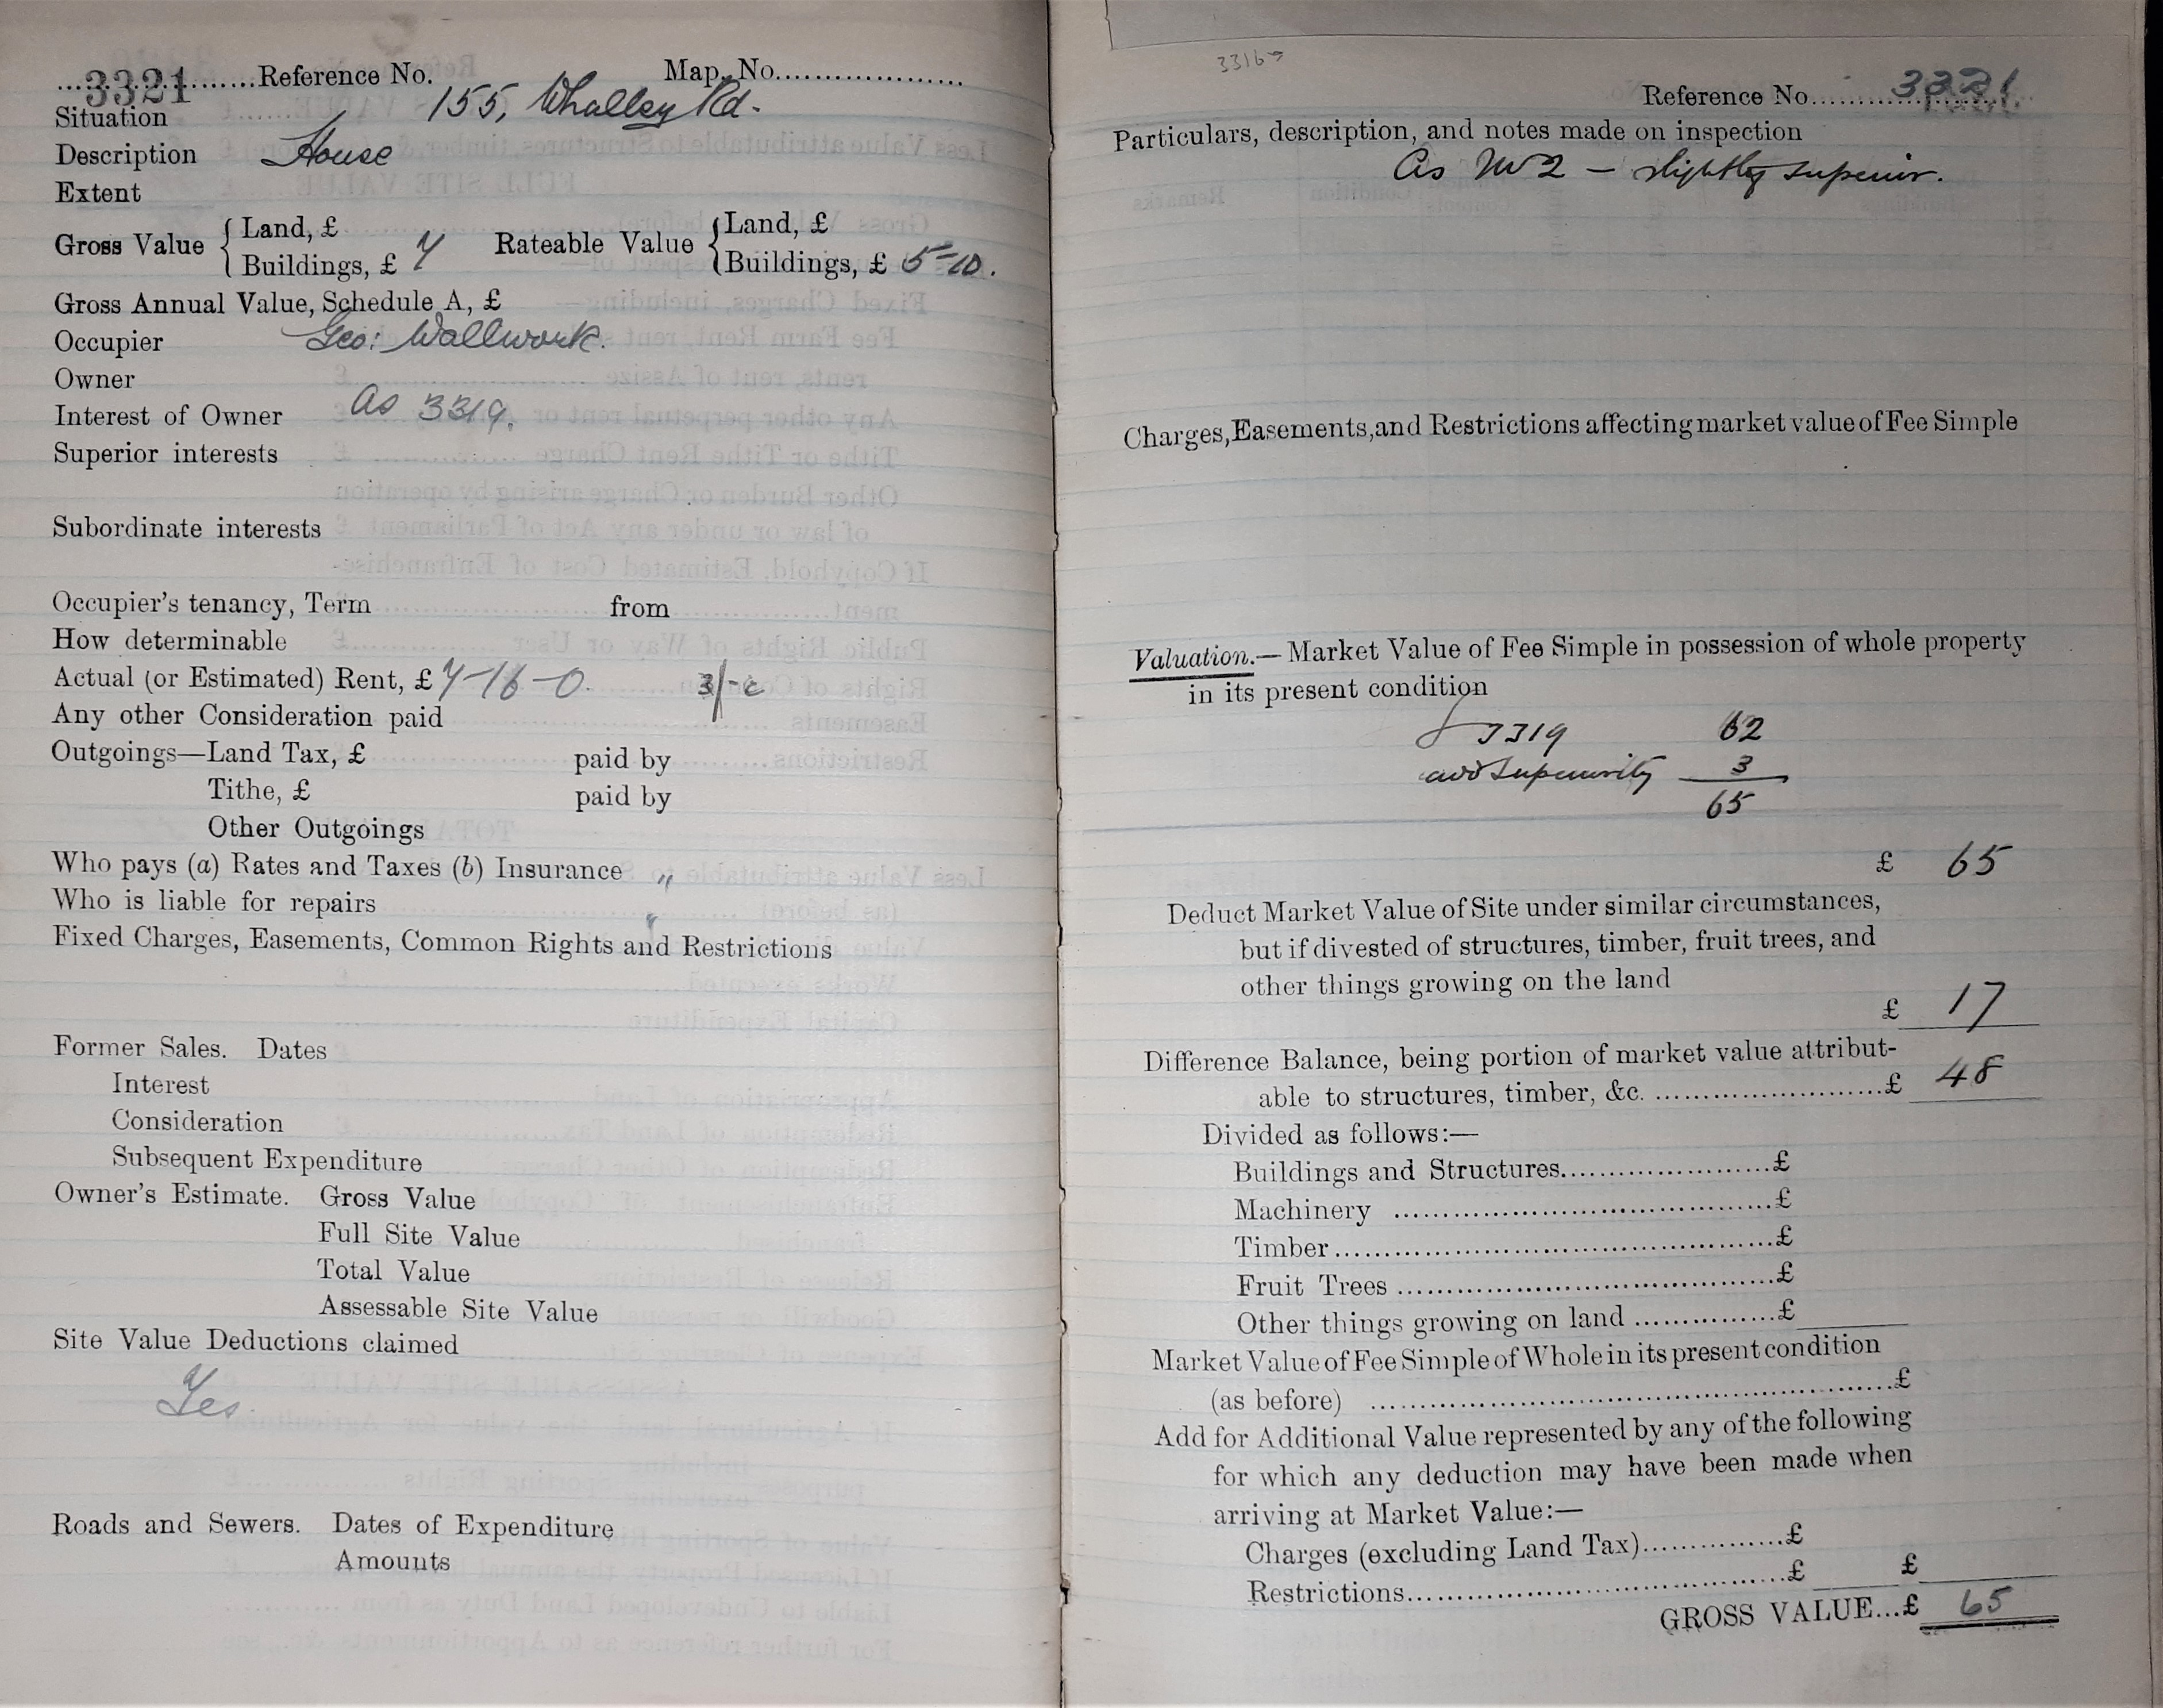 3321 Reference No. Map. No.
Situation 155, Whalley Rd.
Description House
Extent
Gross Value { Land, £ Rateable Value { Land, £
Buildings, £ 7 Buildings, £ 5-10.
Gross Annual Value, Schedule A, £
Occupier Geo: Wallwork.
Owner
Interest of Owner As 3319.
Superior interests
Subordinate interests
Occupier's tenancy, Term from
How determinable
Actual (or Estimated) Rent, £ 7-16-0. 3/- c
Any other Consideration paid
Outgoings—Land Tax, £ paid by
Tithe, £ paid by
Other Outgoings
Who pays (a) Rates and Taxes (b) Insurance "
Who is liable for repairs "
Fixed Charges, Easements, Common Rights and Restrictions
Former Sales. Dates
Interest
Consideration
Subsequent Expenditure
Owner's Estimate. Gross Value
Full Site Value
Total Value
Assessable Site Value
Site Value Deductions claimed
Yes.
Roads and Sewers. Dates of Expenditure
Amounts
3316
Reference No. 3321
Particulars, description, and notes made on inspection
As 2 — slightly superior.
Charges, Easements, and Restrictions affecting market value of Fee Simple
Valuation.— Market Value of Fee Simple in possession of whole property
in its present condition
3319 62
add superiority 3
65
£ 65
Deduct Market Value of Site under similar circumstances,
but if divested of structures, timber, fruit trees, and
other things growing on the land
£ 17
Difference Balance, being portion of market value attribut-
able to structures, timber, &c. £ 48
Divided as follows:—
Buildings and Structures £
Machinery £
Timber £
Fruit Trees £
Other things growing on land £
Market Value of Fee Simple of Whole in its present condition
(as before) £
Add for Additional Value represented by any of the following
for which any deduction may have been made when
arriving at Market Value:—
Charges (excluding Land Tax) £
Restrictions £ £
GROSS VALUE...£ 65